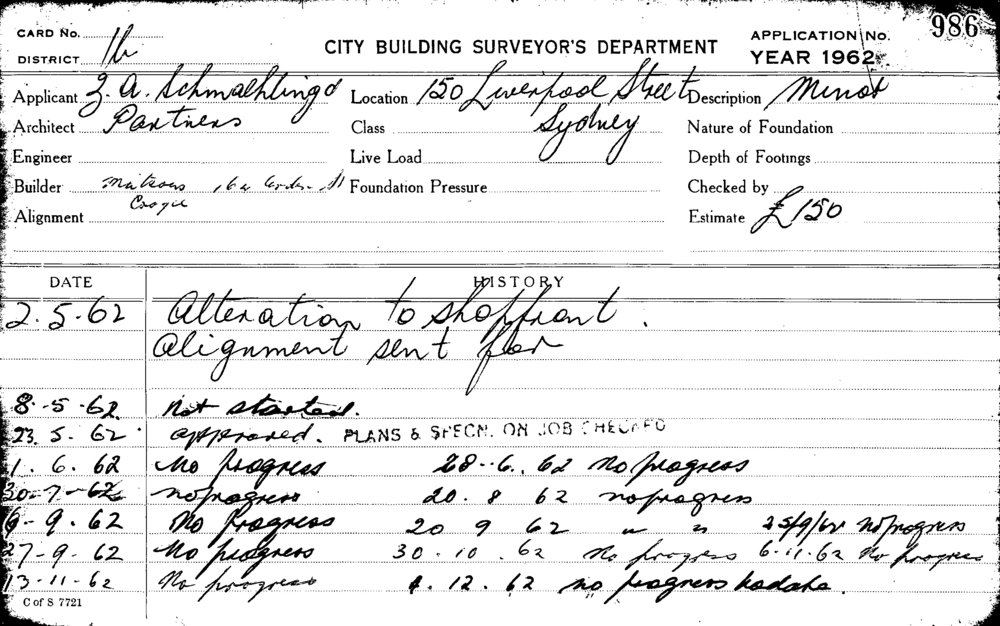 CARD No.
986
DISTRICT 1b
CITY BUILDING SURVEYOR'S DEPARTMENT
APPLICATION No.
YEAR 1962
Applicant Z. A. Schmaehling &
Location 150 Liverpool Street
Description Minor
Architect Partners
Class Sydney
Nature of Foundation
Engineer
Live Load
Depth of Footings
Builder
Foundation Pressure
Checked by
Coogee
Alignment
Estimate £150
DATE HISTORY
2.5.62 Alteration to shopfront.
Alignment sent for
8.5.62 Not started.
23.5.62 approved. PLANS & SPECN. ON JOB CHECKED
1.6.62 No progress 28.6.62 No progress
30-7-62 no progress 20.8 62 no progress
6-9.62 No Progress 20 9 62 " " 25/9/62 No Progress
27-9.62 No progress 30.10.62 No progress 6.11.62 No progress
13.11.62 No progress 4.12.62 no progress
C of S 7721